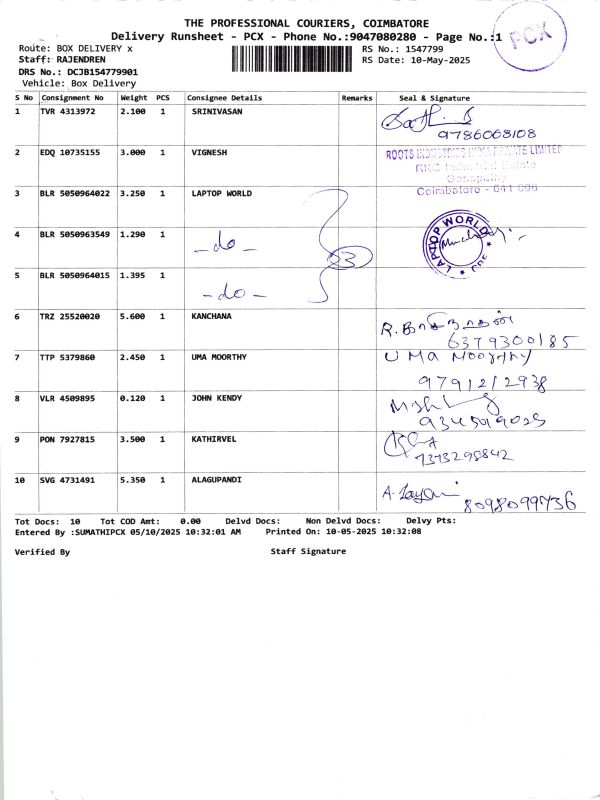 THE PROFESSIONAL COURIERS, COIMBATORE
Delivery Runsheet - PCX - Phone No.:9047080280 - Page No.:1
PCX
Route: BOX DELIVERY x
RS No.: 1547799
Staff: RAJENDREN
RS Date: 10-May-2025
DRS No.: DCJB154779901
Vehicle: Box Delivery
S No Consignment No Weight PCS Consignee Details Remarks Seal & Signature
1 TVR 4313972 2.100 1 SRINIVASAN
9786068108
2 EDQ 10735155 3.000 1 VIGNESH
ROOTS INDUSTRIES INDIA PRIVATE LIMITED
RKG Industrial Estate
Ganapathy
Coimbatore - 641 006
3 BLR 5050964022 3.250 1 LAPTOP WORLD
LAPTOP WORLD
CBE
4 BLR 5050963549 1.290 1 -do-
3
5 BLR 5050964015 1.395 1 -do-
6 TRZ 25520020 5.600 1 KANCHANA
6379300185
7 TTP 5379860 2.450 1 UMA MOORTHY UMA MOORTHY
9791212938
8 VLR 4509895 0.120 1 JOHN KENDY
9 PON 7927815 3.500 1 KATHIRVEL
7373298842
10 SVG 4731491 5.350 1 ALAGUPANDI
8098099736
Tot Docs: 10 Tot COD Amt: 0.00 Delvd Docs: Non Delvd Docs: Delvy Pts:
Entered By :SUMATHIPCX 05/10/2025 10:32:01 AM Printed On: 10-05-2025 10:32:08
Verified By Staff Signature